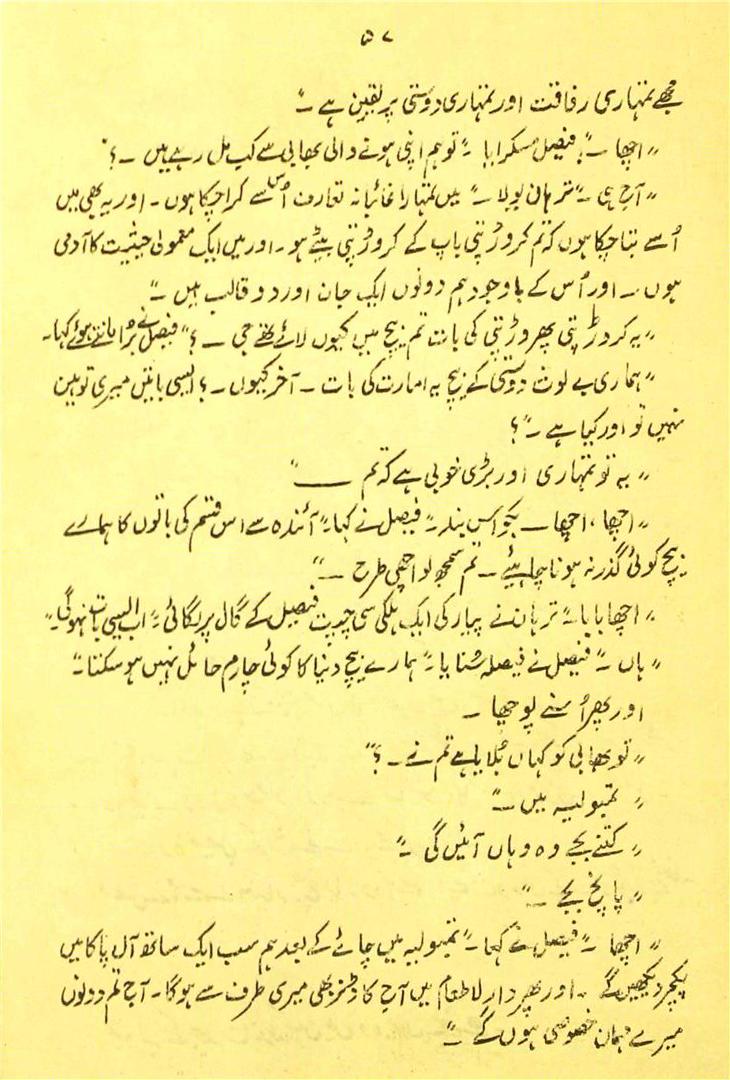 ۵۷
مجھے تمہاری رفاقت اور تمہاری دوستی پر یقین ہے ۔"
"اچھا ۔" فیصل مسکرایا ۔" تو ہم اپنی ہونے والی بھابی سے کب مل رہے ہیں ۔؟"
"آج ہی ۔" ترہان بولا ۔" میں تمہارا غائبانہ تعارف اُس سے کرا چکا ہوں ۔ اور یہ بھی میں
اُسے بتا چکا ہوں کہ تم کروڑ پتی باپ کے کروڑ پتی بیٹے ہو ۔ اور میں ایک معمولی حیثیت کا آدمی
ہوں ۔ اور اُس کے باوجود ہم دونوں ایک جان اور دو قالب ہیں ۔"
"یہ کروڑ پتی پھروڑ پتی کی بات تم بیچ میں کیوں لائے تھے جی ۔ ؟" فیصل نے بُرا مانتے ہوئے کہا ۔
"ہماری بے لوث دوستی کے بیچ یہ امارت کی بات ۔ آخر کیوں ۔ ؟ ایسی باتیں میری توہین
نہیں تو اور کیا ہے ۔" ؟
"یہ تو تمہاری اور بڑی خوبی ہے کہ تم ــــ"
"اچھا ، اچھا ــ بکواس بند ۔" فیصل نے کہا ۔" آئندہ سے اس قسم کی باتوں کا ہمارے
بیچ کوئی گذر نہ ہونا چاہیئے ۔ تم سمجھ لو اچھی طرح ۔"
"اچھا بابا ۔" ترہان نے پیار کی ایک ہلکی سی چپت فیصل کے گال پر لگائی ۔" اب ایسی بات نہ ہوگی ۔"
"ہاں ۔" فیصل نے فیصلہ سُنایا ۔" ہمارے بیچ دنیا کا کوئی چارم حائل نہیں ہو سکتا ۔"
اور پھر اُسنے پوچھا ۔
"تو بھابی کو کہاں بُلایا ہے تم نے ۔ ؟"
"تمبولیہ میں ۔"
"کتنے بجے وہ وہاں آئیں گی ۔"
"پانچ بجے ۔"
"اچھا ۔" فیصل نے کہا ۔" تمبولیہ میں چائے کے بعد ہم سب ایک ساتھ آل پاکا میں
پکچر دیکھیں گے ۔ اور پھر دارلاطعام میں آج کا ڈنر بھی میری طرف سے ہوگا ۔ آج تم دونوں
میرے مہمان خصوصی ہوں گے ۔"